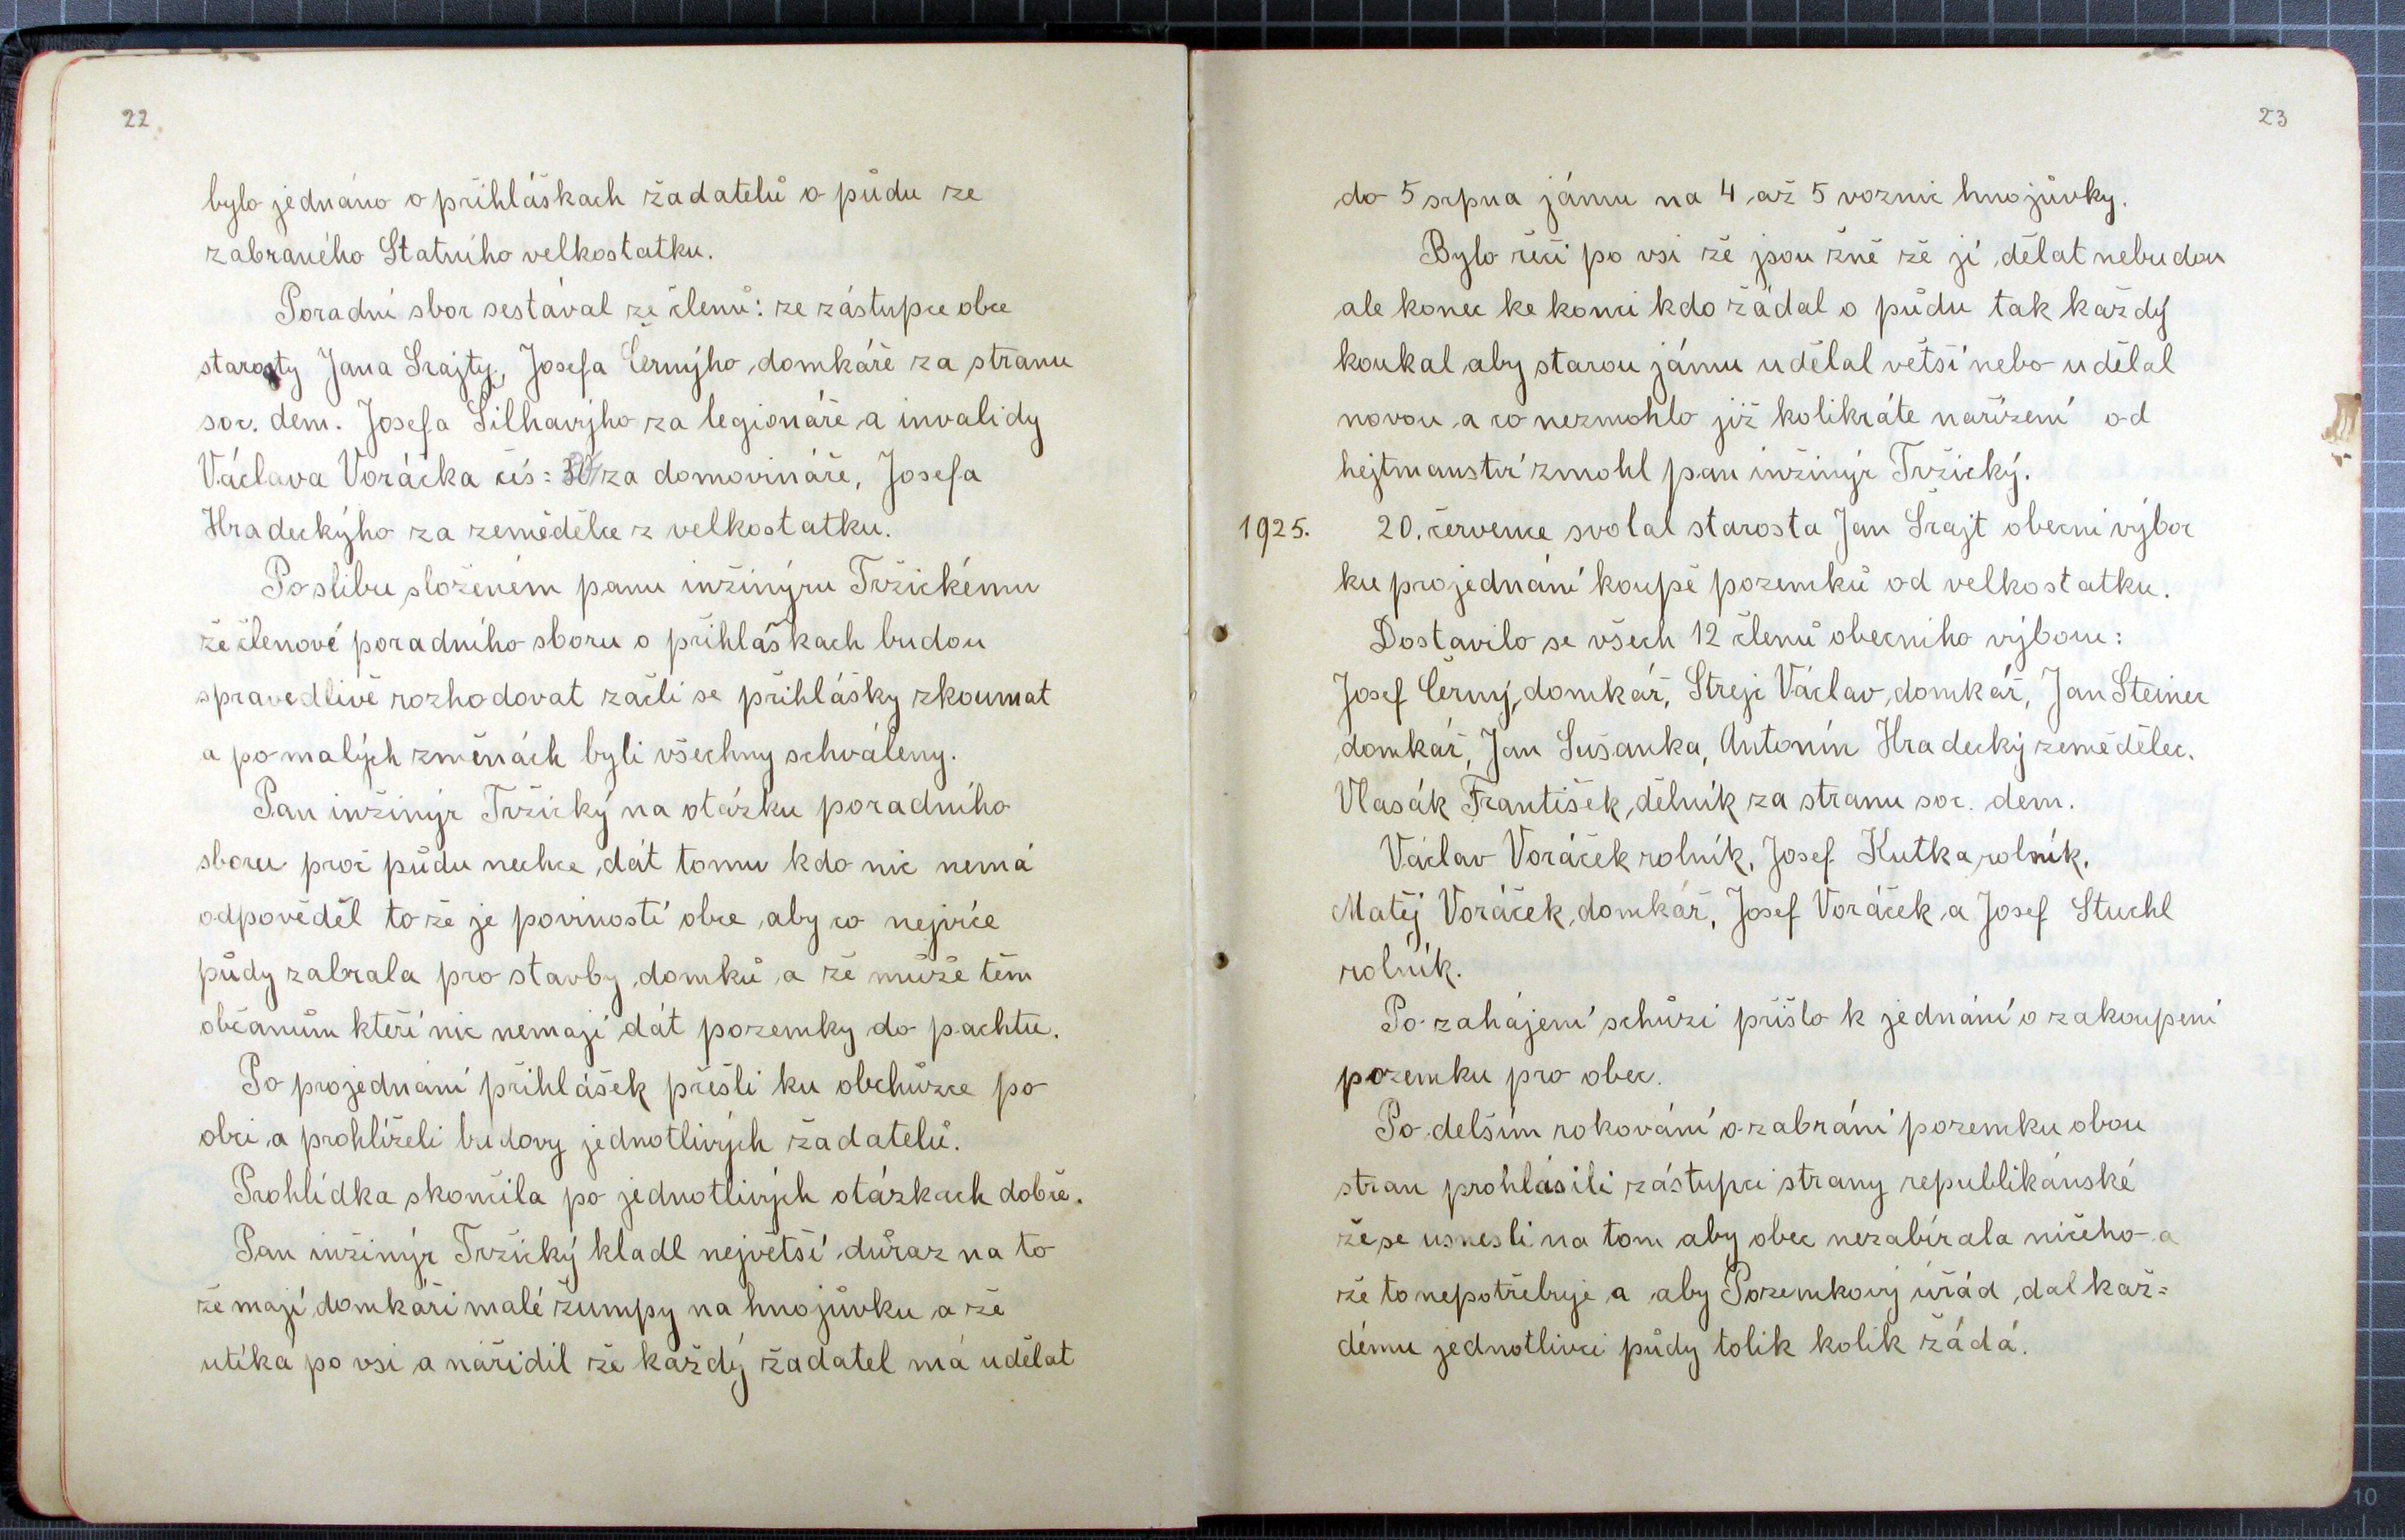 22
bylo jednáno o přihláškach žadatelů o půdu ze
zabraného Statního velkostatku.
Poradní sbor sestával ze členů: ze zástupce obce
starosty Jana Srajty, Josefa Černýho domkáře za stranu
soc. dem. Josefa Šilhavýho za legionáře a invalidy
Václava Voráčka čís: za domovináře, Josefa
Hradeckýho za zemědělce z velkostatku.
Po slibu složeném panu inžinýru Tvžickému
že členové poradního sboru o přihláškach budou
spravedlivě rozhodovat začli se přihlášky zkoumat
a po malých změnách byli všechny schváleny.
Pan inžinýr Tvžický na otázku poradního
sboru proč půdu nechce dát tomu kdo nic nemá
odpověděl to že je poviností obce aby co nejvíce
půdy zabrala pro stavby domků a že může těm
občanům kteří nic nemají dát pozemky do pachtu.
Po projednání přihlášek přešli ku obchůzce po
obci a prohlíželi budovy jednotlivých žadatelů.
Prohlídka skončila po jednotlivých otázkach dobře.
Pan inžinýr Tvžický kladl největší důraz na to
že mají domkáři malé žumpy na hnojůvku a že
utíká po vsi a nařidil že každý žadatel má udělat
23
do 5 srpna jámu na 4 až 5 voznic hnojůvky.
Bylo řečí po vsi že jsou žně že jí dělat nebudou
ale konec ke konci kdo žádal o půdu tak každý
koukal aby starou jámu udělal větší nebo udělal
novou a co nezmohlo již kolikráte nařízení od
hejtmanství zmohl pan inžinýr Tvžický.
1925. 20. července svolal starosta Jan Šrajt obecní výbor
ku projednání koupě pozemků od velkostatku.
Dostavilo se všech 12 členů obecního výboru:
Josef Černý, domkář, Strejc Václav, domkář, Jan Steiner
domkář, Jan Sušanka, Antonín Hradecký zemědělec.
Vlasák František, dělník za stranu soc. dem.
Václav Voráček rolník, Josef Kutka, rolník,
Matěj Voráček, domkář, Josef Voráček a Josef Stuchl
rolník.
Po zahájení schůzi přišlo k jednání o zakoupení
pozemku pro obec.
Po delším rokování o zabrání pozemku obou
stran prohlásili zástupci strany republikánské
že se usnesli na tom aby obec nezabírala ničeho a
že to nepotřebuje a aby Pozemkový úřád dal kaž=
dému jednotlivci půdy tolik kolik žádá.
10